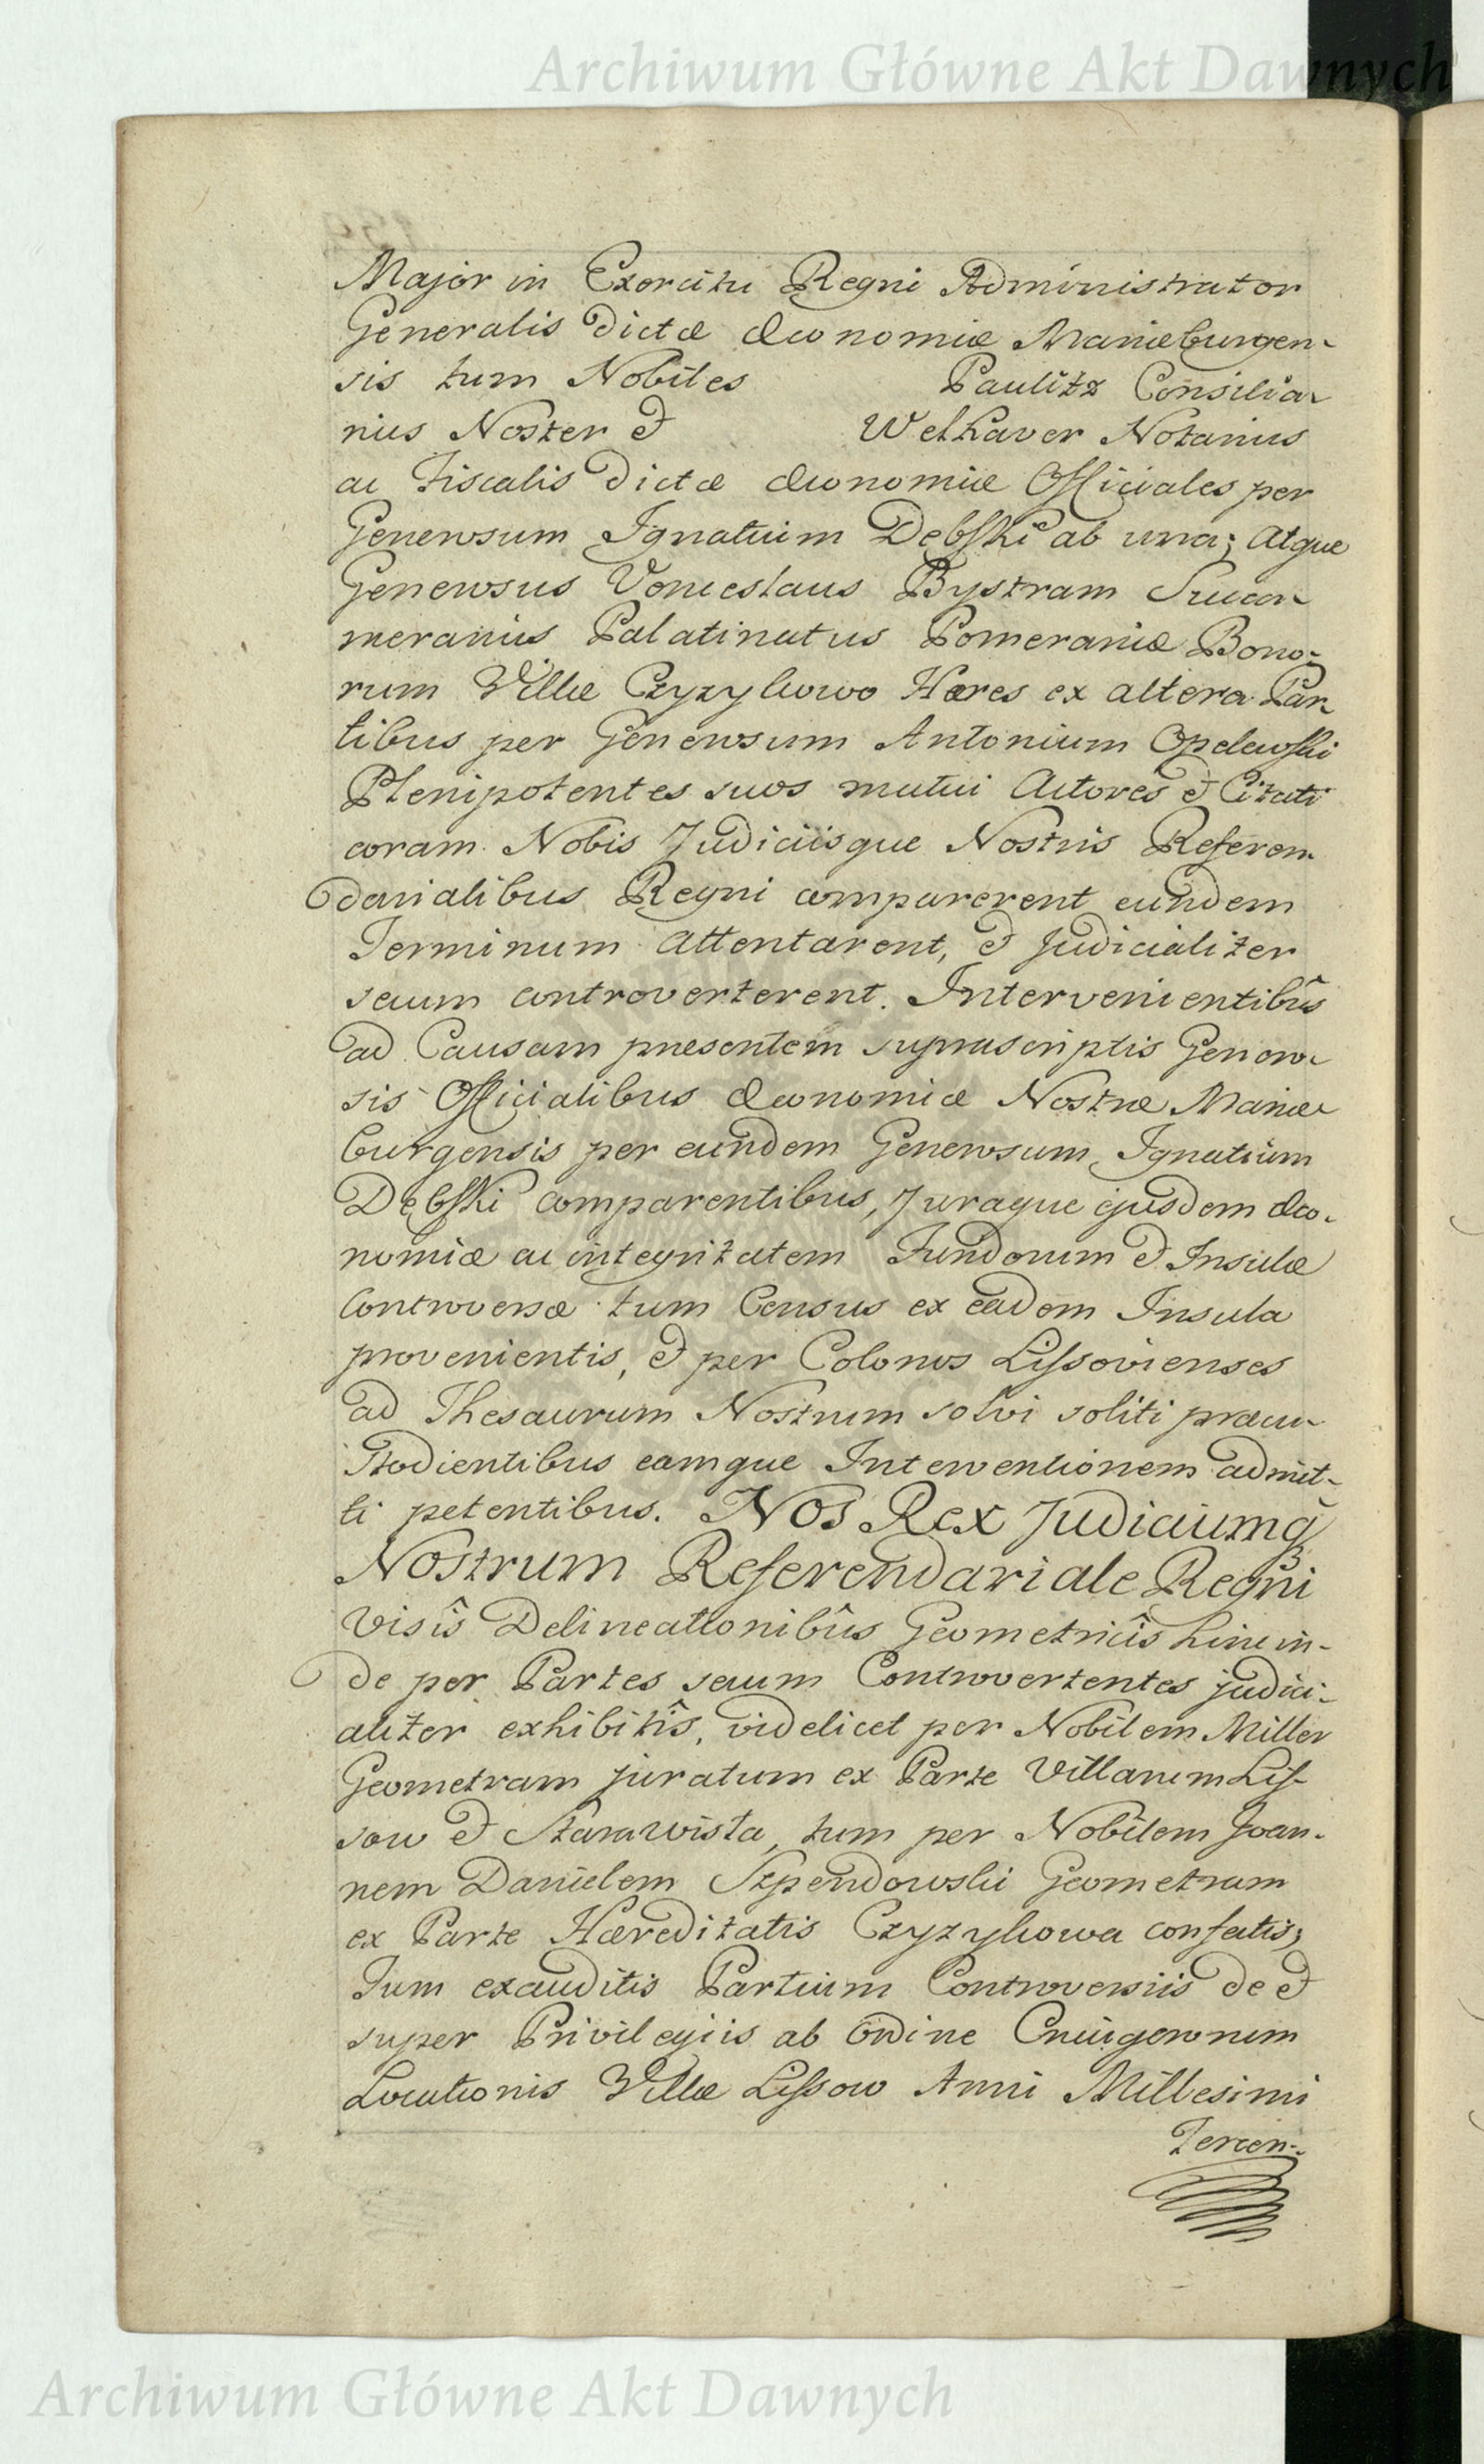 Archiwum Główne Akt Dawnych
Major in Exercitu Regni Administrator
Generalis dictæ Œconomiæ Mariæburgen-
sis tum Nobiles Paulitz Consilia-
rius Noster et Welhaver Notarius
ac Fiscalis dictæ Œconomiæ Officiales per
Generosum Ignatium Dębski ab una; atque
Generosus Bystram Succa-
merarius Palatinatus Pomeraniæ Bono-
rum Villæ Czyzykowo Hæres ex altera Par-
tibus per Generosum Antonium Opelewski
Plenipotentes suos mutui Actores et Citati
coram Nobis Judiciisque Nostris Referen-
darialibus Regni comparerent eundem
Terminum attentarent, et judicialiter
secum controverterent. Intervenientibûs
ad Causam præsentem suprascriptis Genero-
sis Officialibus Œconomiæ Nostræ Mariæ-
burgensis per eundem Generosum Ignatium
Dębski comparentibus, Juraque ejusdem Œco-
nomiæ ac integritatem Fundorum et Insulæ
Controversæ tum Census ex eadem Insula
provenientis, et per Colonos Lissovienses
ad Thesaurum Nostrum solvi soliti præcu-
stodientibus eamque Interventionem admit-
ti petentibus. Nos Rex Judiciumq̃
Nostrum Referendariale Regni
visîs Delineationibûs Geometricîs hinc in-
de per Partes secum Controvertentes judici-
aliter exhibitîs, videlicet per Nobilem Miller
Geometram juratum ex Parte Villarum Lis-
sow et Starawista, tum per Nobilem Joan-
nem Danielem Szpendowski Geometram
ex Parte Hæreditatis Czyzykowa confectis;
Tum exauditis Partium Controversiis de et
super Privilegiis ab Ordine Crucigerorum
Locationis Villæ Lissow Anni Millesimi
Tercen-
Archiwum Główne Akt Dawnych